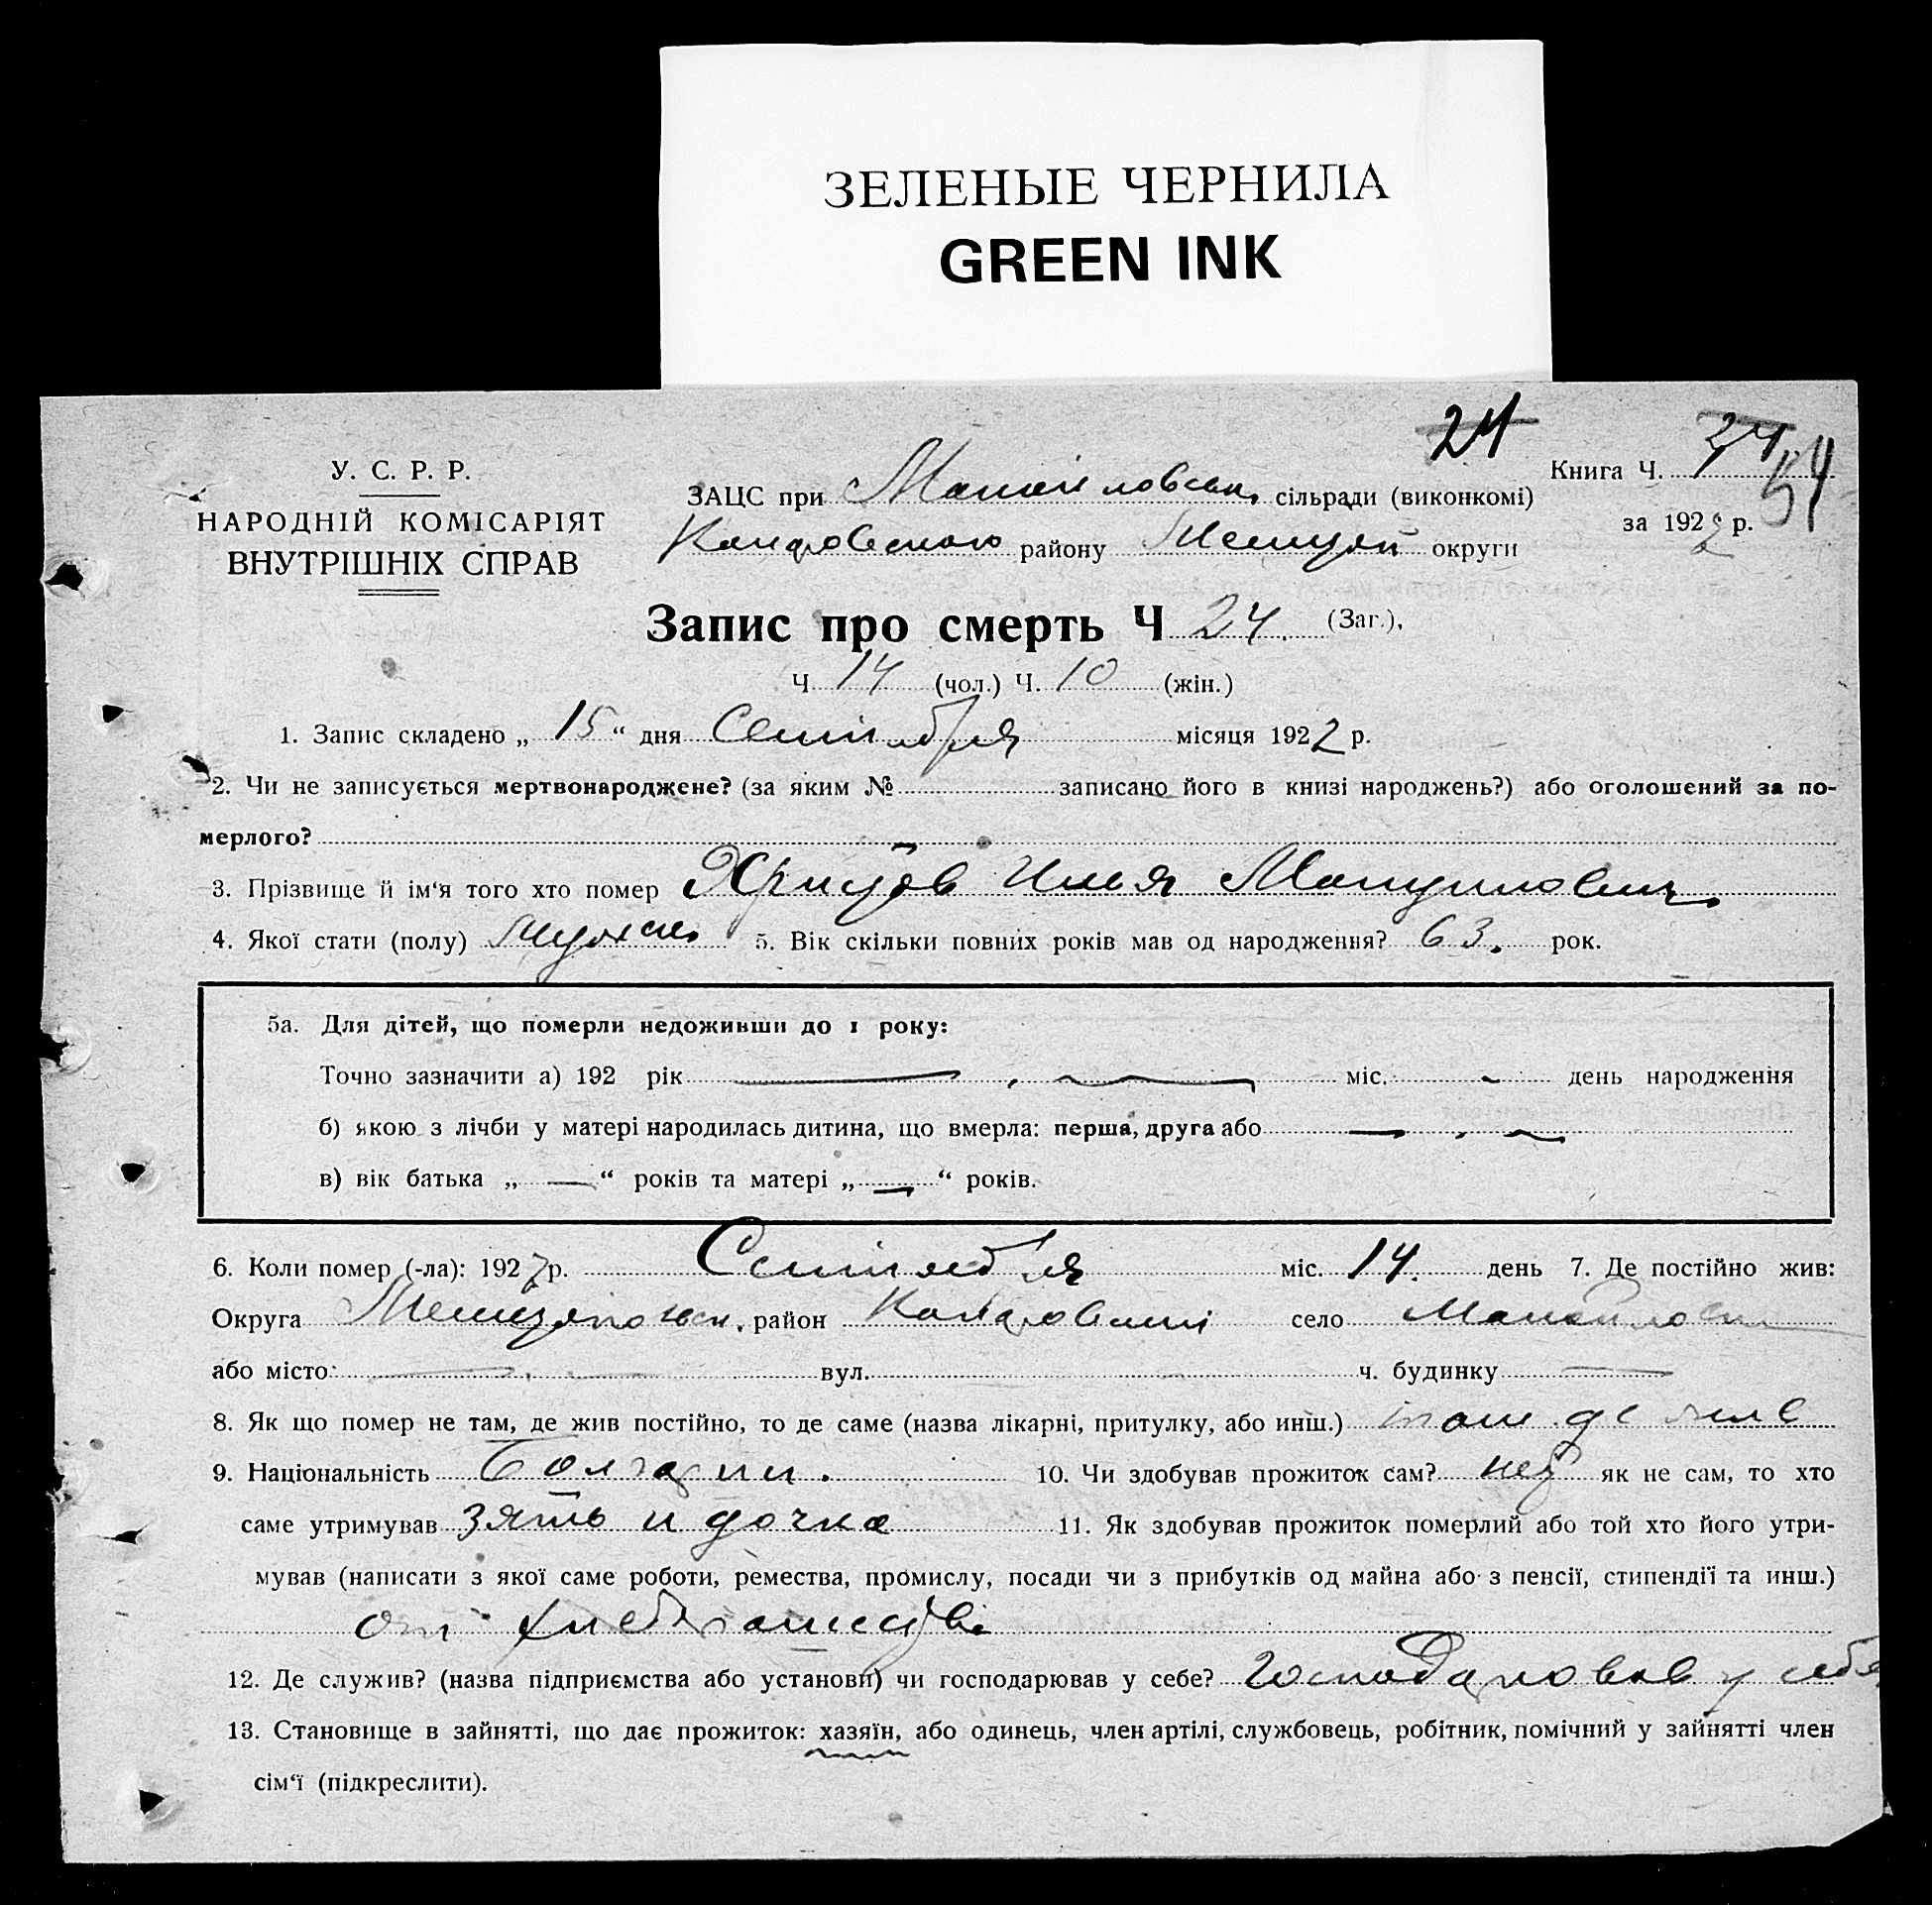 ЗЕЛЕНЫЕ ЧЕРНИЛА
GREEN INK
24
У. С. Р. Р.
НАРОДНІЙ КОМІСАРІЯТ
ВНУТРІШНІХ СПРАВ
ЗАЦС при сільради (виконкомі)
району округи
Книга Ч. 24 54
за 1922 р.
Запис про смерть Ч 24. (Заг.),
Ч 14 (чол.) Ч. 10 (жін.)
1. Запис складено „ 15 “ дня Сентября місяця 1922 р.
2. Чи не записується мертвонароджене? (за яким № записано його в книзі народжень?) або оголошений за по-
мерлого?
3. Прізвище й ім‘я того хто помер Христов Илья
4. Якої стати (полу) 5. Вік скільки повних років мав од народження? 63. рок.
5а. Для дітей, що померли недоживши до 1 року:
Точно зазначити а) 192 рік — , — міс. - день народження
б) якою з лічби у матері народилась дитина, що вмерла: перша, друга або —
в) вік батька „ — “ років та матері „ — “ років.
6. Коли помер (-ла): 192 р. Сентября міс. 14. день 7. Де постійно жив:
Округа район село
або місто: — вул. ч. будинку —
8. Як що помер не там, де жив постійно, то де саме (назва лікарні, притулку, або инш.) там де жив
9. Національність Болгарин. 10. Чи здобував прожиток сам? нет як не сам, то хто
саме утримував зять и дочка 11. Як здобував прожиток померлий або той хто його утри-
мував (написати з якої саме роботи, ремества, промислу, посади чи з прибутків од майна або з пенсії, стипендії та инш.)
от
12. Де служив? (назва підприємства або установи) чи господарював у себе? Господаровав у себя
13. Становище в зайнятті, що дає прожиток: хазяїн, або одинець, член артілі, службовець, робітник, помічний у зайнятті член
сім‘ї (підкреслити).